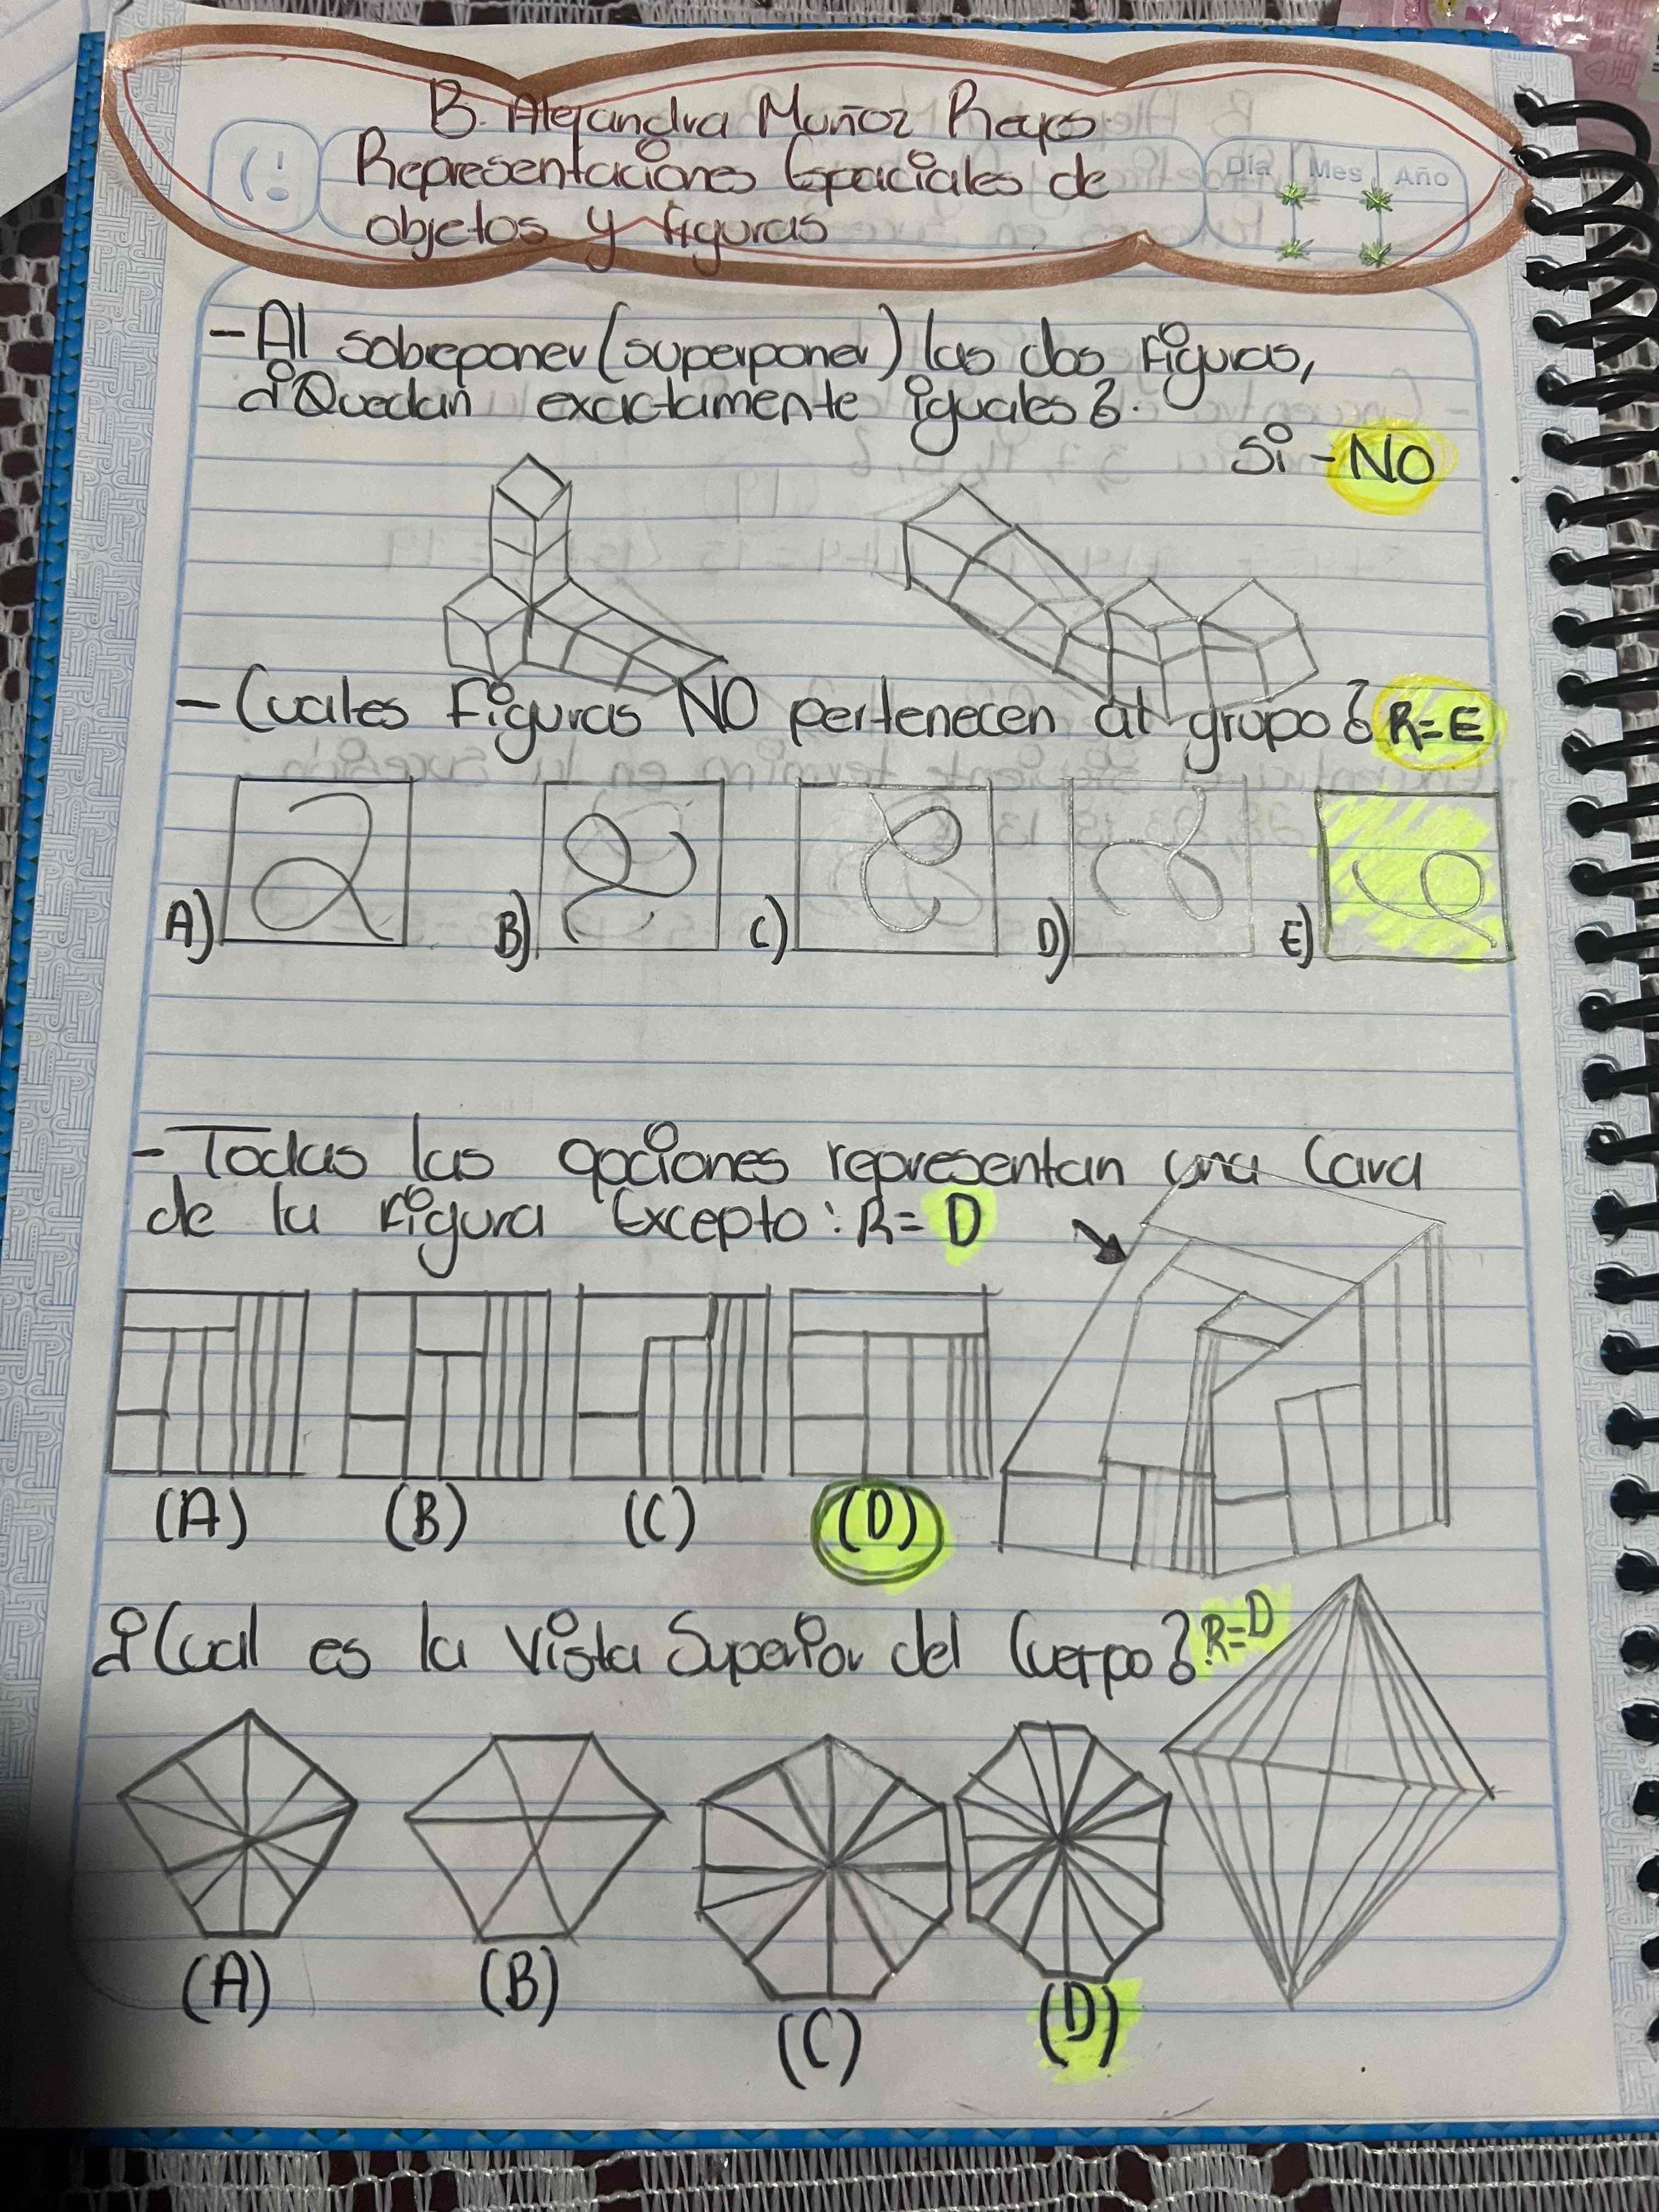 B. Alejandra Muñoz Reyes.
Representaciones Espaciales de
objetos y figuras
Día Mes Año
- Al sobreponer (superponer) las dos figuras,
¿Quedan exactamente iguales?.
Si - NO
- Cuales figuras NO pertenecen al grupo? R=E
A) B) C) D) E)
- Todas las opciones representan una Cara
de la figura Excepto: R= D
(A) (B) (C) (D)
¿Cual es la Vista Superior del Cuerpo? R=D
(A) (B) (C) (D)